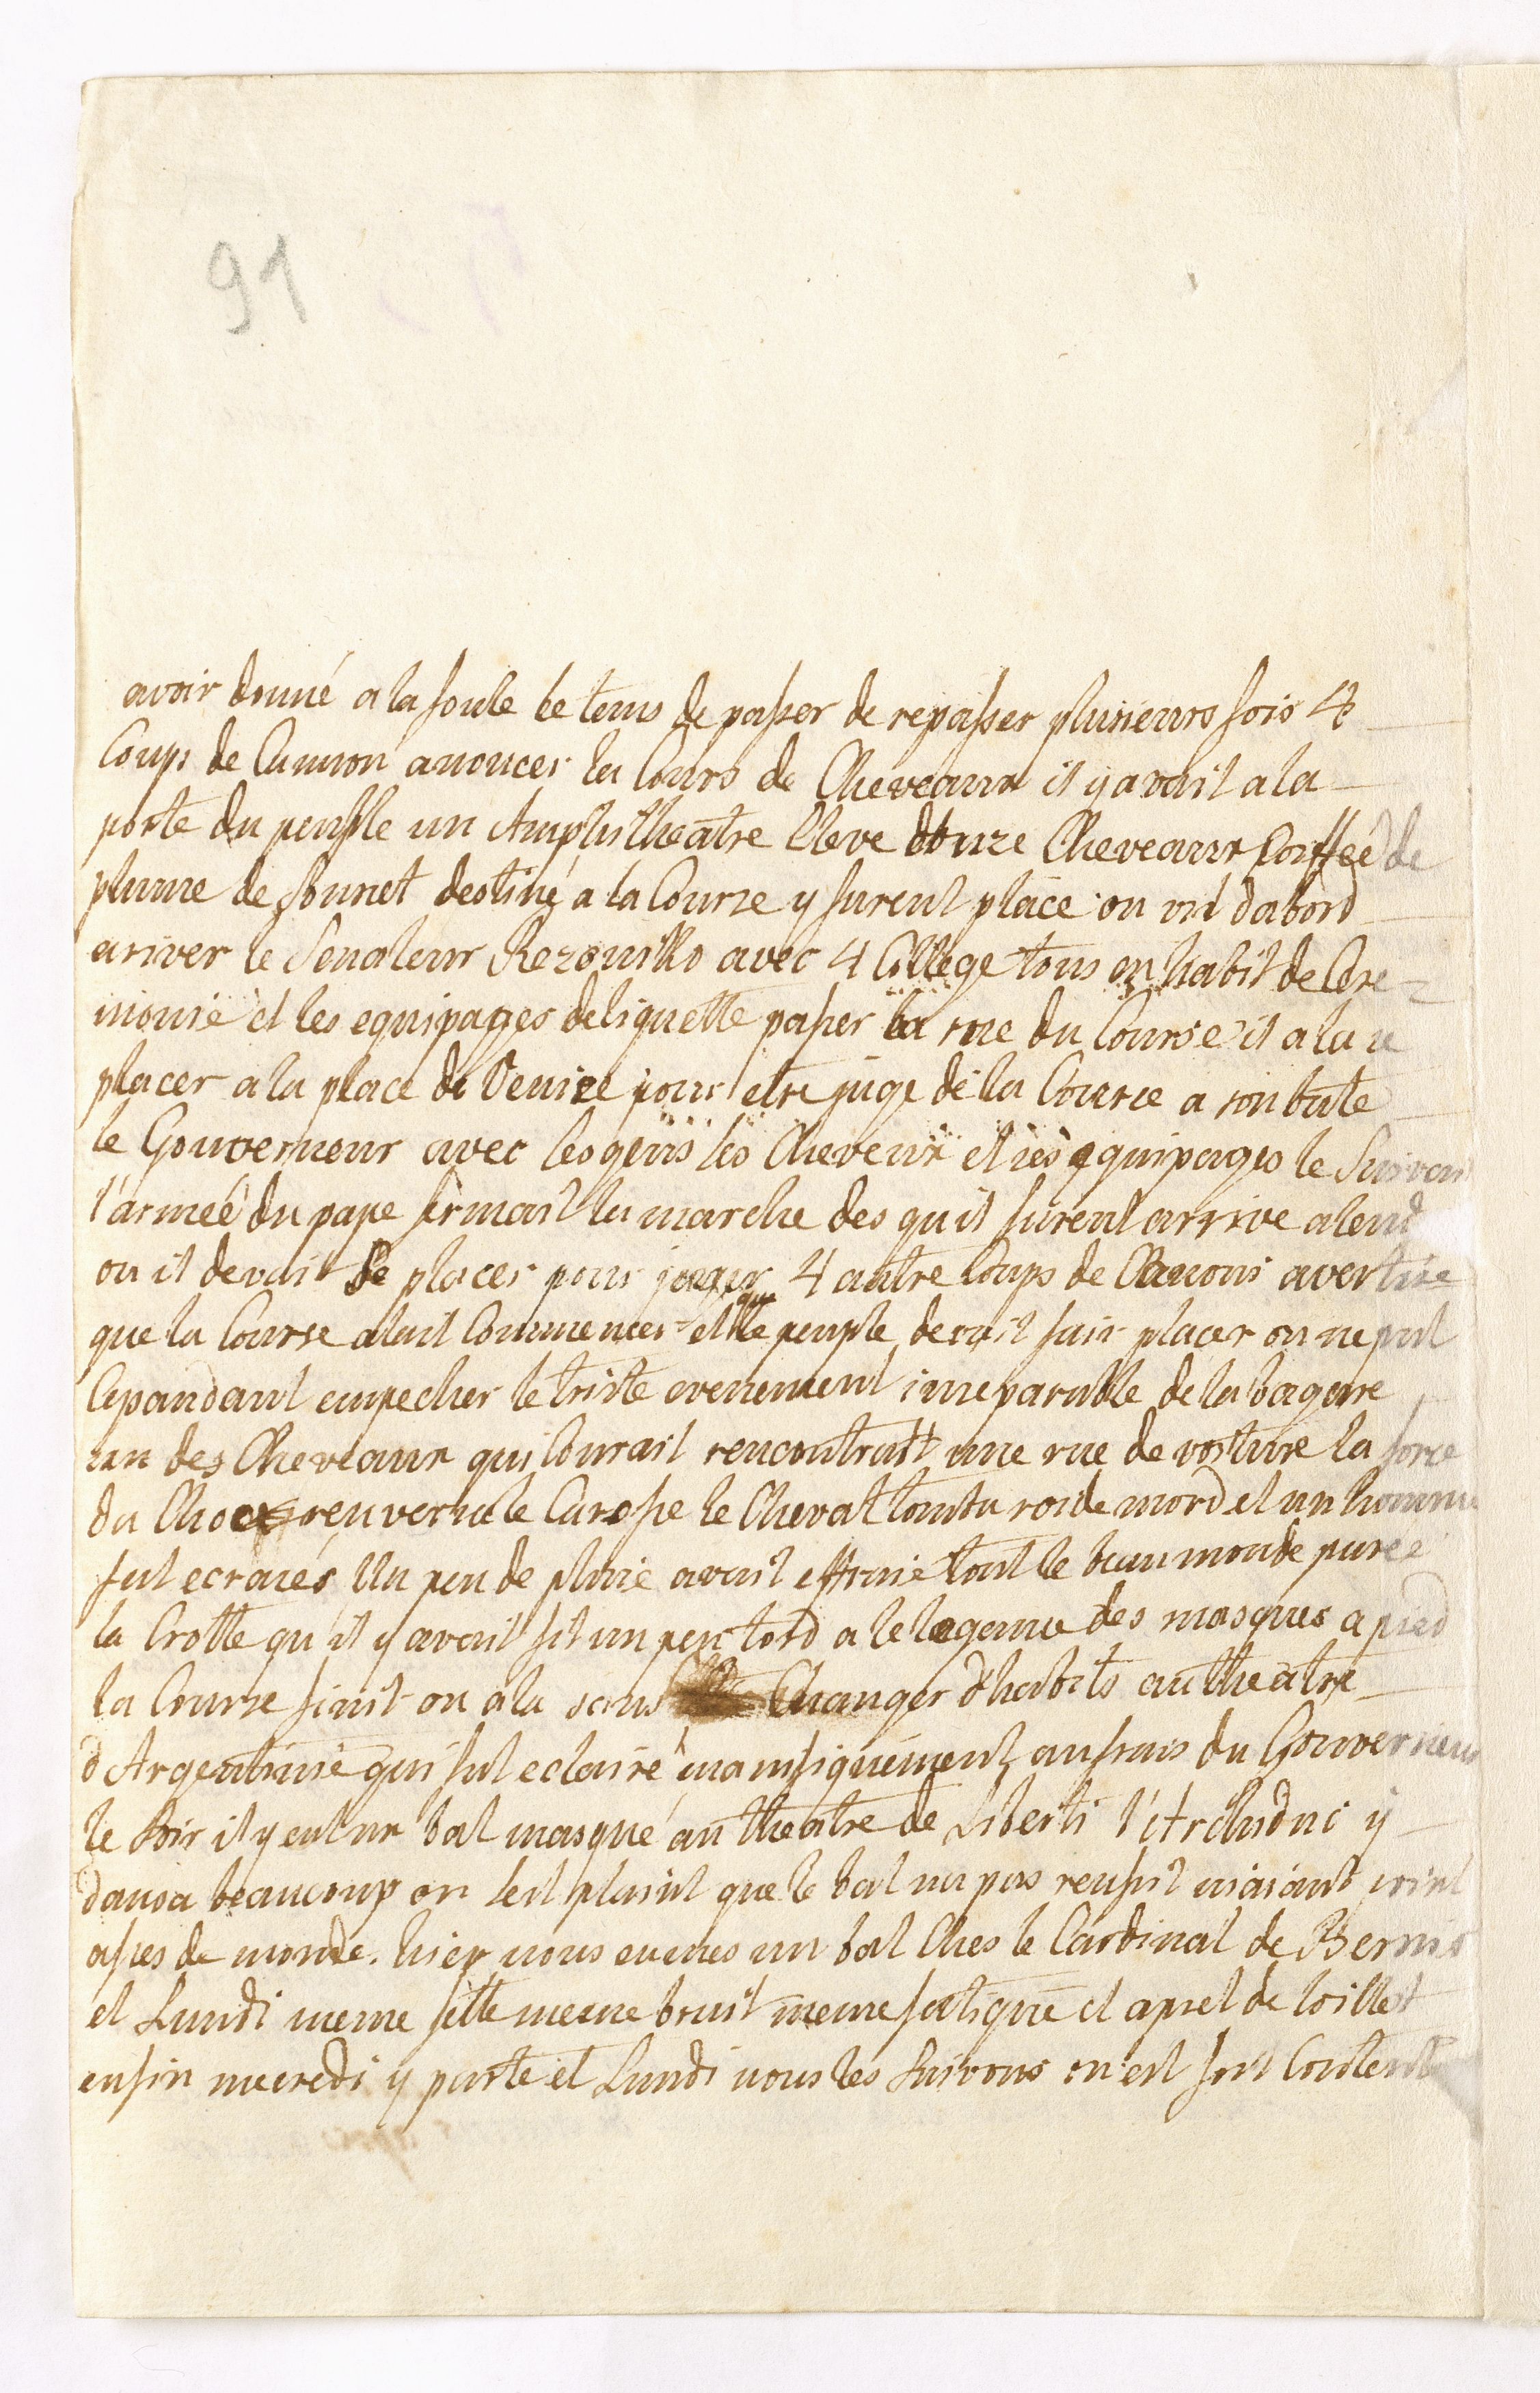 91
avoir donné a la foule le tems de passer de repasser plusieurs fois 4
Coups de Cannon anoncer la Cours de Cheveaux il y avait a la
porte du peuple un Amphitheatre Eleve douze Cheveaux Coiffeé de
plume de sonnet destiné a la Course y furent place on vit dabord
ariver le Senateur Rezoniko avec 4 College tous en habit de Cere=
monie et les equipages deliquette passer la rue du Course il ala se
placer a la place de Venize pour etre juge de la Cource a son bute
le Gouverneur avec les gens les Cheveux et ses equipages le Suivai
l'armeé du pape fermait la marche des qu il furent arrive a lend
ou il devait Se placer pour juger 4 autre Coups de Canons avertire
que la Course alait Commencer et que le peuple devait fair placer on ne put
Cepandant empecher le triste evenement inreparable de la bagare
un des Cheveaux qui Courait rencontrait une rue de voiture la force
du Choc renversa le Carosse le Cheval tomba roide mord et un homme
fut ecrases Un peu de pluie avait effraie tout le beau monde pareé
la Crotte qu il y avait fit un peu tord a le legance des masques a pied
la Course finit on ala sans Changer d'habits au theatre
d Argentinie qui fut eclaire manifiquement au frais du Gouverneur
le Soir il y eut un bal masqué au theatre de Liberti l'Archiduc y
dansa beaucoup on sest plaint que le bal na pas reussit niaiant point
asses de monde. hier nous eumes un bal Ches le Cardinal de Bernis
et Lundi meme fette meme bruit meme fatigue et apret de toillet
enfin mecredi y parte et Lundi nous les Suivons on est fort Contents